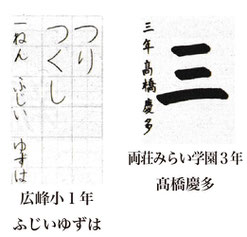 つり
つくし
一ねん ふじい ゆずは
広峰小1年
ふじいゆずは
三
三年 髙橋慶多
両荘みらい学園3年
髙橋慶多